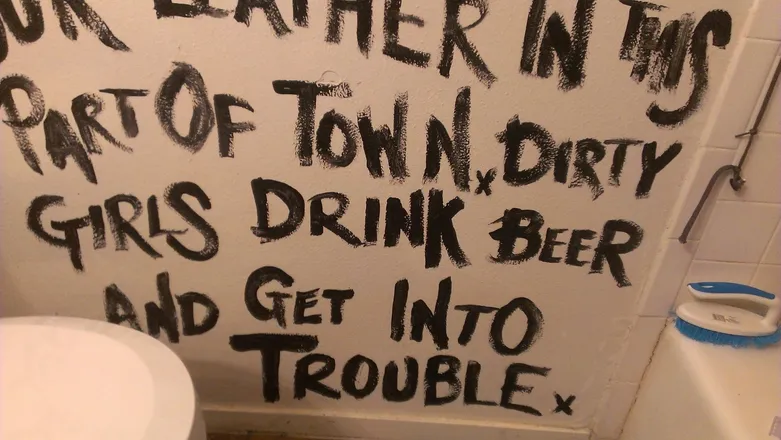 LEATHER IN THIS
PART OF TOWN x DIRTY
GIRLS DRINK BEER
AND GET INTO
TROUBLE x